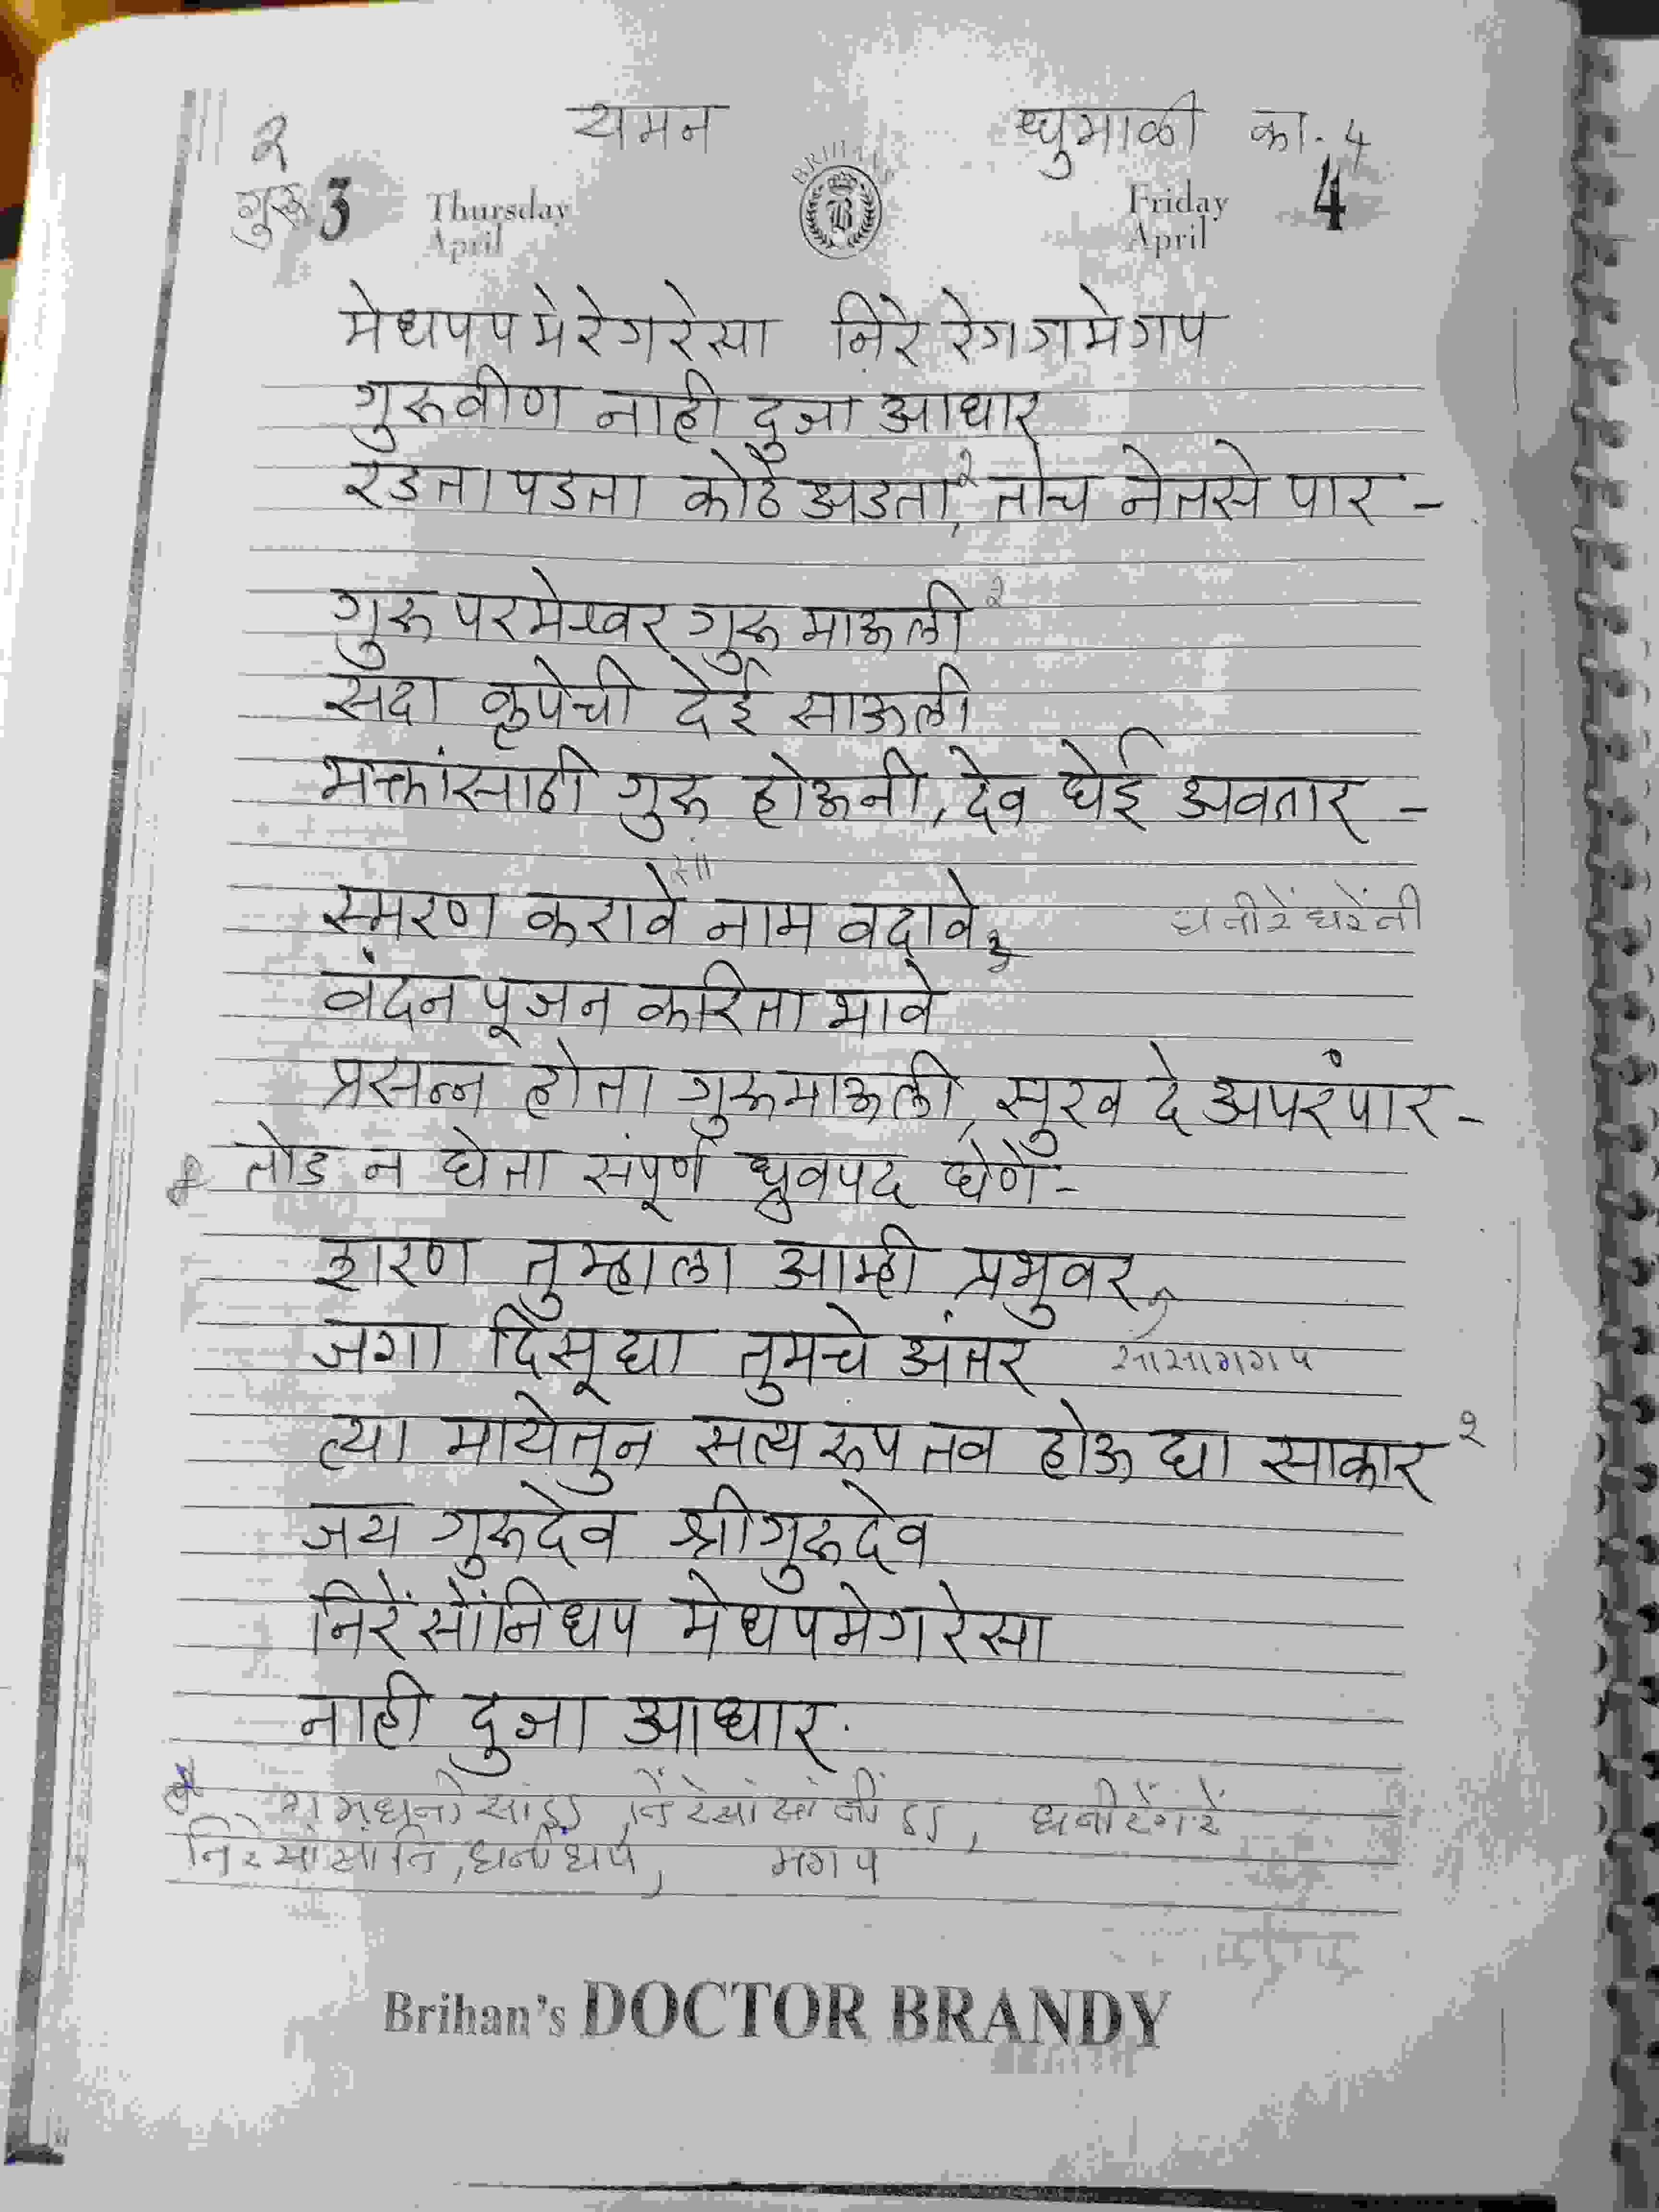 २ यमन धुमाळी का. 4
गुरु 3 Thursday April BRIHAN'S B Friday April 4
मेधपप मेरेगरेसा निरे रेगगमेगप
गुरुवीण नाही दुजा आधार
रडता पडता कोठे अडता,२ तोच नेतसे पार -
गुरु परमेश्वर गुरु माऊली २
सदा कृपेची देई साऊली
भक्तांसाठी गुरु होऊनी, देव घेई अवतार -
स्मरण करावे नाम वदावे, २ धनीरेंधरेंनी
वंदन पूजन करिता भावे
प्रसन्न होता गुरुमाऊली, सुख दे अपरंपार -
तोड न घेता संपूर्ण ध्रुवपद घेणे -
शरण तुम्हाला आम्ही प्रभुवर,
जगा दिसू द्या तुमचे अंतर सासागगप
त्या मायेतुन सत्य रुप तव होऊ द्या साकार २
जय गुरुदेव श्रीगुरुदेव
निरेंसांनिधप मेधपमेगरेसा
नाही दुजा आधार.
धनीरेंगरें
निरेसांसांनि, धनीधप, मगप
Brihan's DOCTOR BRANDY